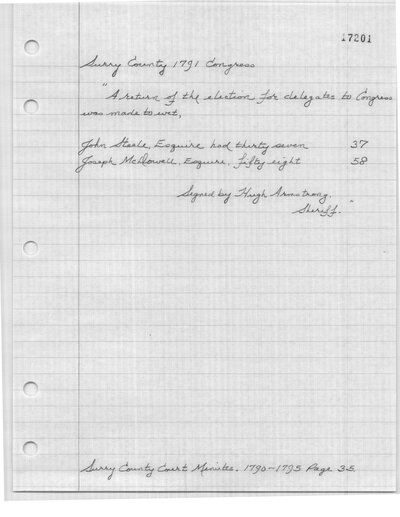 17201
Surry County 1791 Congress
"A return of the election for delegates to Congress
was made to wit,
John Steele, Esquire had thirty seven 37
Joseph McDowell, Esquire, fifty eight 58
Signed by Hugh Armstrong,
Sheriff."
Surry County Court Minutes. 1790-1795 Page 35